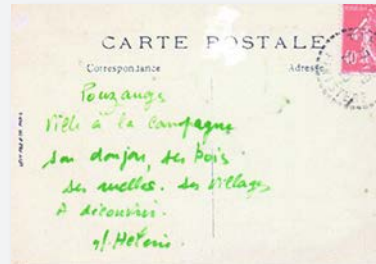 CARTE POSTALE
Correspondance
Adresse
40
Pouzauges
Ville à la campagne
son donjon, ses bois
ses ruelles. Ses villages
A découvrir.